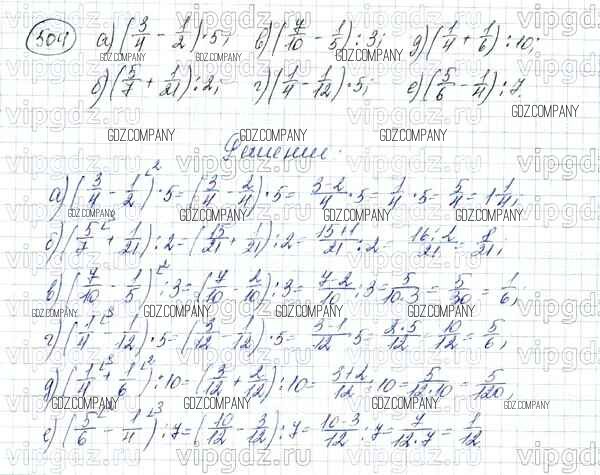 504 а) (3/4 - 1/2) · 5; в) (7/10 - 1/5) : 3; д) (1/4 + 1/6) : 10;
б) (5/7 + 1/21) : 2; г) (1/4 - 1/12) · 5; е) (5/6 - 1/4) : 7.
Решение.
а) (3/4 - 1/2) · 5 = (3/4 - 2/4) · 5 = 3-2/4 · 5 = 1/4 · 5 = 5/4 = 1 1/4;
б) (5/7 + 1/21) : 2 = (15/21 + 1/21) : 2 = 15+1/21 : 2 = 16:2/21 = 8/21;
в) (7/10 - 1/5) : 3 = (7/10 - 2/10) : 3 = 7-2/10 : 3 = 5/10·3 = 5/30 = 1/6;
г) (1/4 - 1/12) · 5 = (3/12 - 1/12) · 5 = 3-1/12 · 5 = 2·5/12 = 10/12 = 5/6;
д) (1/4 + 1/6) : 10 = (3/12 + 2/12) : 10 = 3+2/12 : 10 = 5/12·10 = 5/120;
е) (5/6 - 1/4) : 7 = (10/12 - 3/12) : 7 = 10-3/12 : 7 = 7/12·7 = 1/12